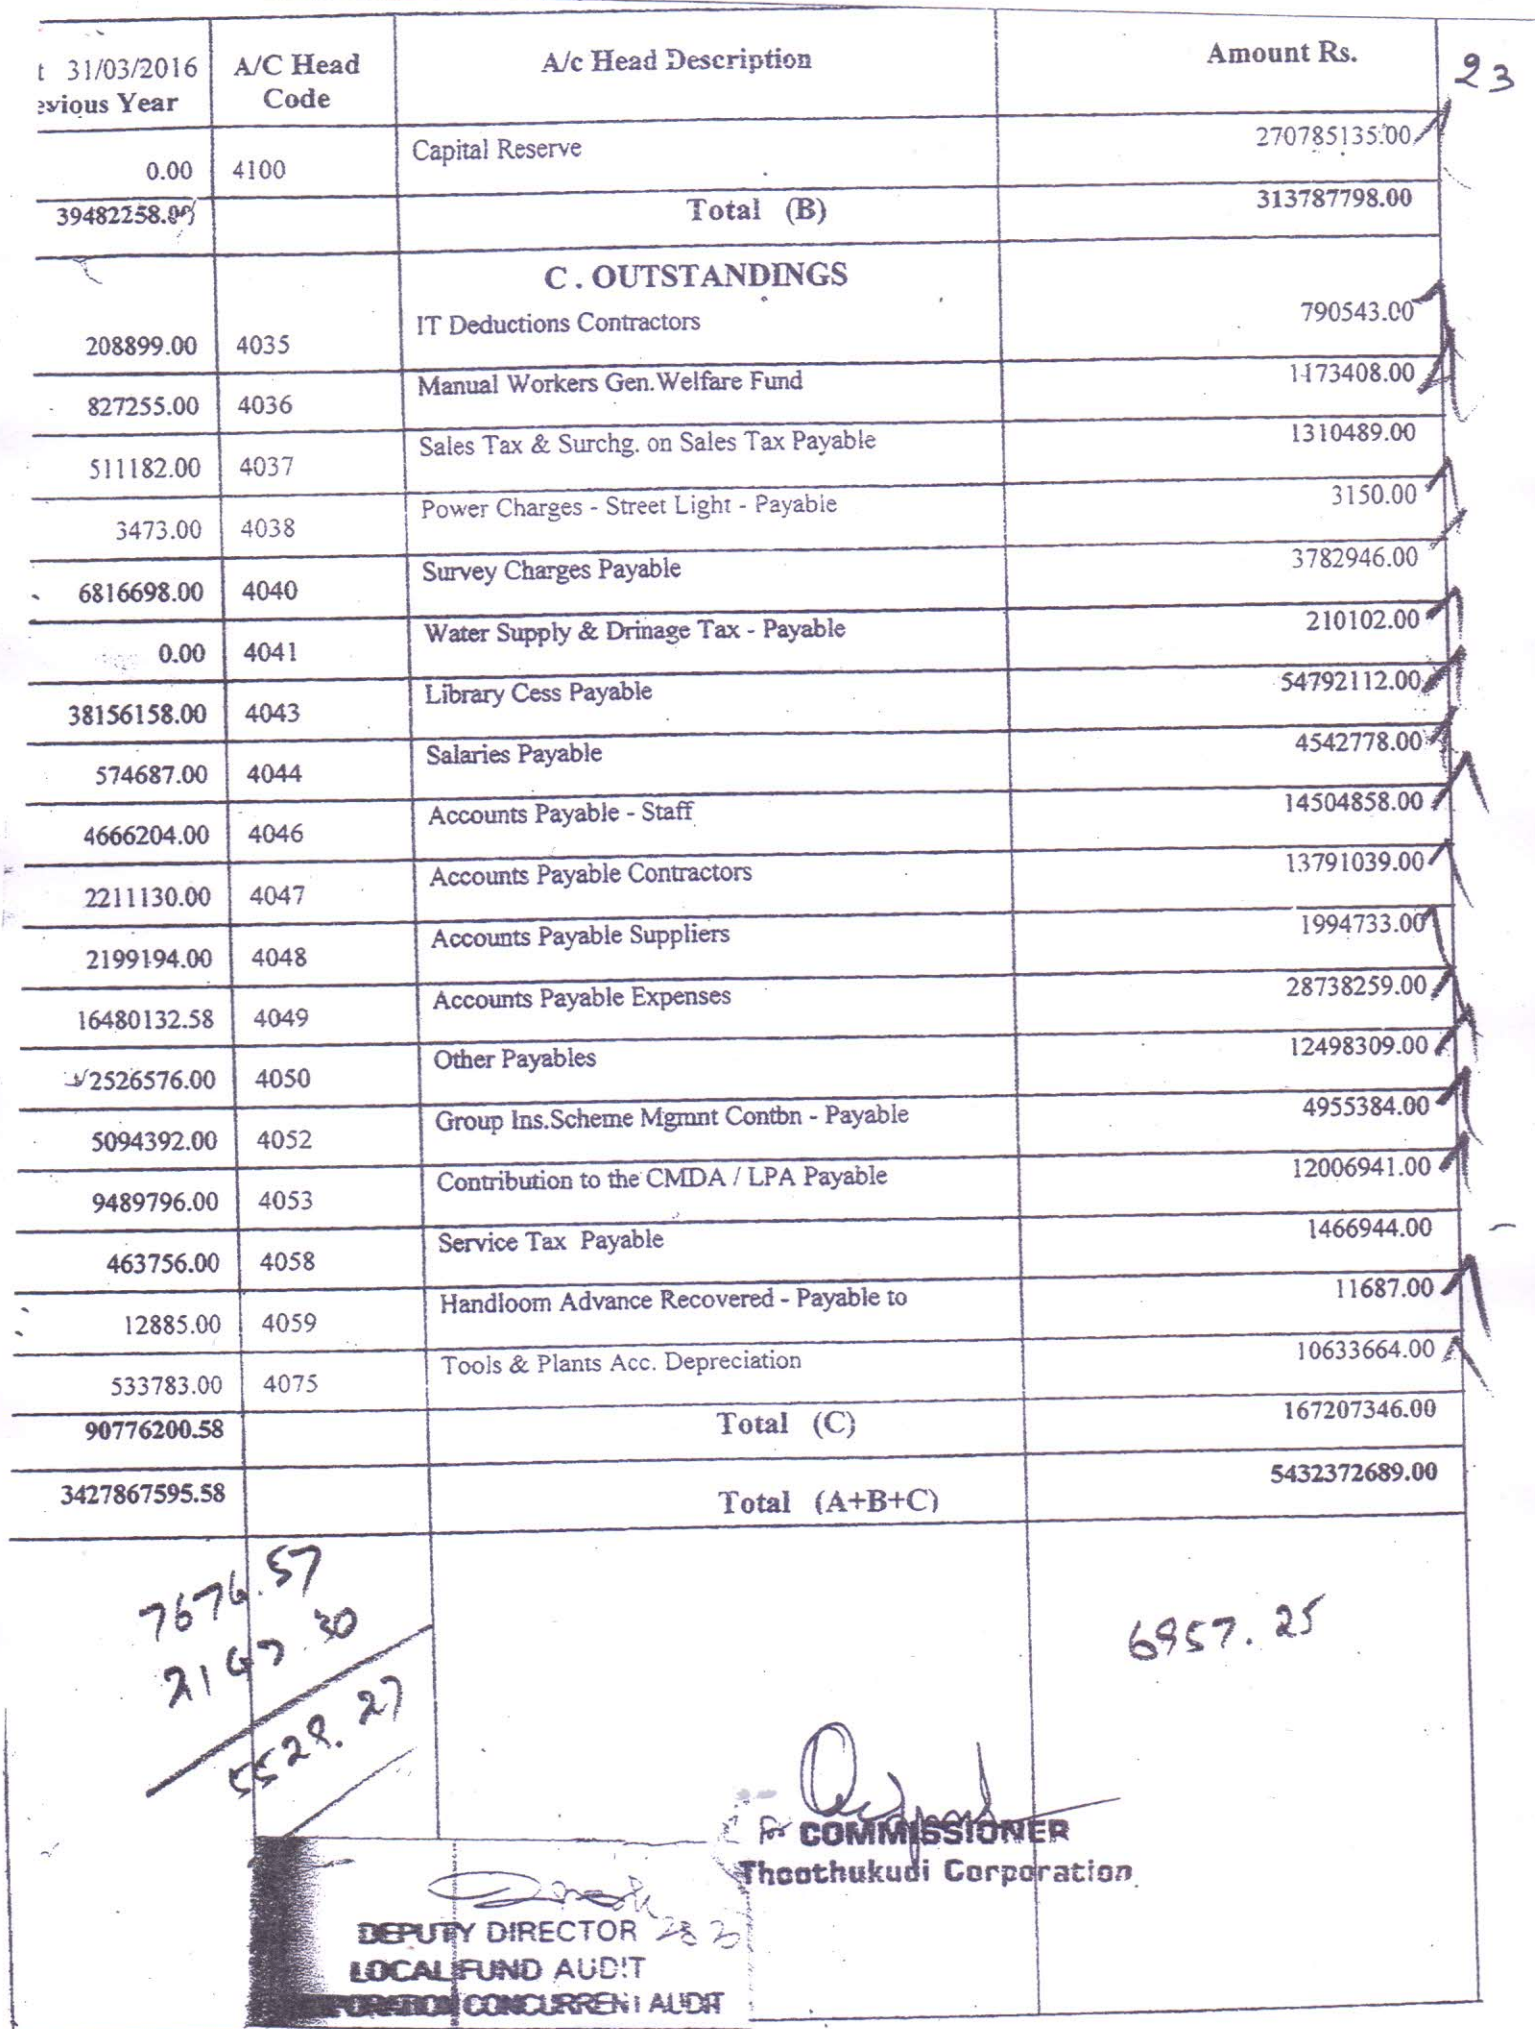 t 31/03/2016 A/C Head A/c Head Description Amount Rs. 23
evious Year Code
0.00 4100 Capital Reserve 270785135.00
39482258.00 Total (B) 313787798.00
C . OUTSTANDINGS
208899.00 4035 IT Deductions Contractors 790543.00
827255.00 4036 Manual Workers Gen.Welfare Fund 1173408.00
511182.00 4037 Sales Tax & Surchg. on Sales Tax Payable 1310489.00
3473.00 4038 Power Charges - Street Light - Payable 3150.00
6816698.00 4040 Survey Charges Payable 3782946.00
0.00 4041 Water Supply & Drinage Tax - Payable 210102.00
38156158.00 4043 Library Cess Payable 54792112.00
574687.00 4044 Salaries Payable 4542778.00
4666204.00 4046 Accounts Payable - Staff 14504858.00
2211130.00 4047 Accounts Payable Contractors 13791039.00
2199194.00 4048 Accounts Payable Suppliers 1994733.00
16480132.58 4049 Accounts Payable Expenses 28738259.00
2526576.00 4050 Other Payables 12498309.00
5094392.00 4052 Group Ins.Scheme Mgmnt Contbn - Payable 4955384.00
9489796.00 4053 Contribution to the CMDA / LPA Payable 12006941.00
463756.00 4058 Service Tax Payable 1466944.00
12885.00 4059 Handloom Advance Recovered - Payable to 11687.00
533783.00 4075 Tools & Plants Acc. Depreciation 10633664.00
90776200.58 Total (C) 167207346.00
3427867595.58 Total (A+B+C) 5432372689.00
7676.57
30
5529.27
6957.25
for COMMISSIONER
Thoothukudi Corporation
DEPUTY DIRECTOR
LOCAL FUND AUDIT
CONCURRENT AUDIT